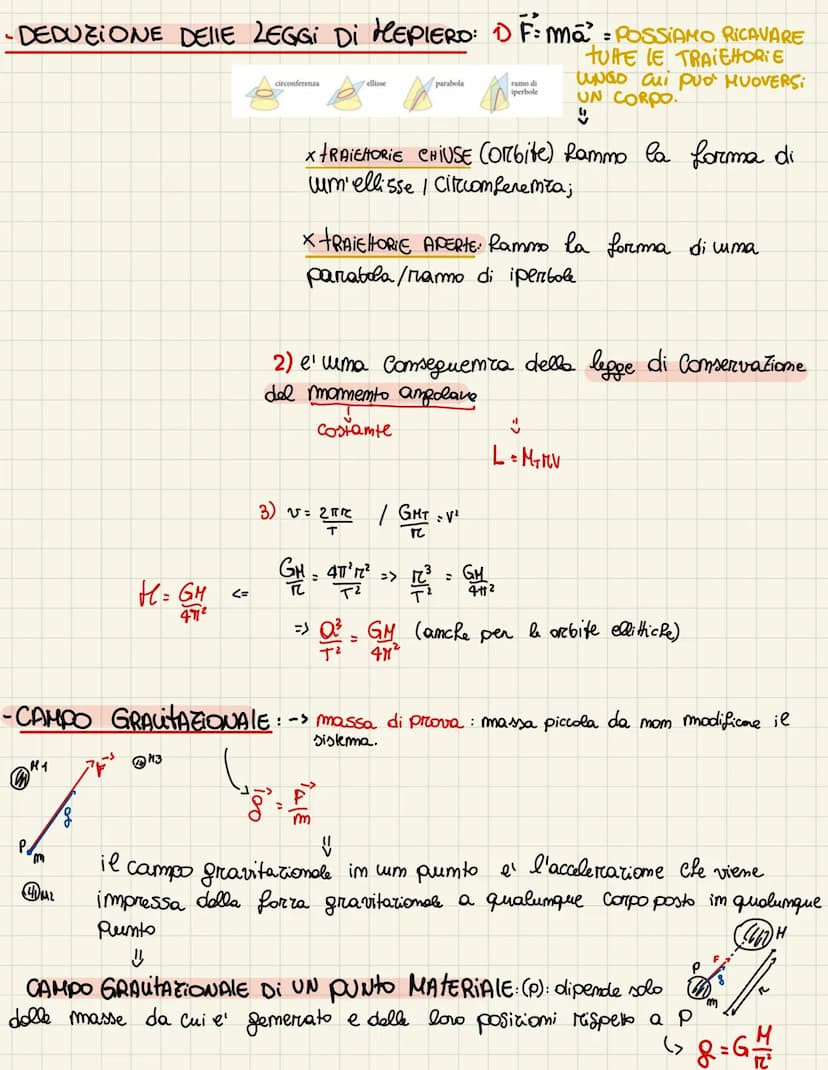 - DEDUZIONE DELLE LEGGI DI KEPLERO: 1) F = ma = POSSIAMO RICAVARE
TUTTE LE TRAIETTORIE
LUNGO CUI PUO' MUOVERSI
UN CORPO.
circonferenza ellisse parabola ramo di
iperbole
x TRAIETTORIE CHIUSE (orbite) hanno la forma di
un'ellisse / circonferenza;
x TRAIETTORIE APERTE: hanno la forma di una
parabola/ramo di iperbole
2) e' una conseguenza della legge di conservazione
del momento angolare
costante
L = M_T r v
3) v = 2πr/T / GM_T/r = v²
GM/r = 4π²r²/T² => r³/T² = GM/4π²
K = GM/4π² <=
=> a³/T² = GM/4π² (anche per le orbite ellittiche)
- CAMPO GRAVITAZIONALE: -> massa di prova : massa piccola da non modificare il
sistema.
M1 F M3
g
g = F/m
P m
M2
il campo gravitazionale in un punto e' l'accelerazione che viene
impressa dalla forza gravitazionale a qualunque corpo posto in qualunque
punto
CAMPO GRAVITAZIONALE DI UN PUNTO MATERIALE: (P): dipende solo
dalle masse da cui e' generato e dalle loro posizioni rispetto a P
M
P F g
m r
g = G M/r²